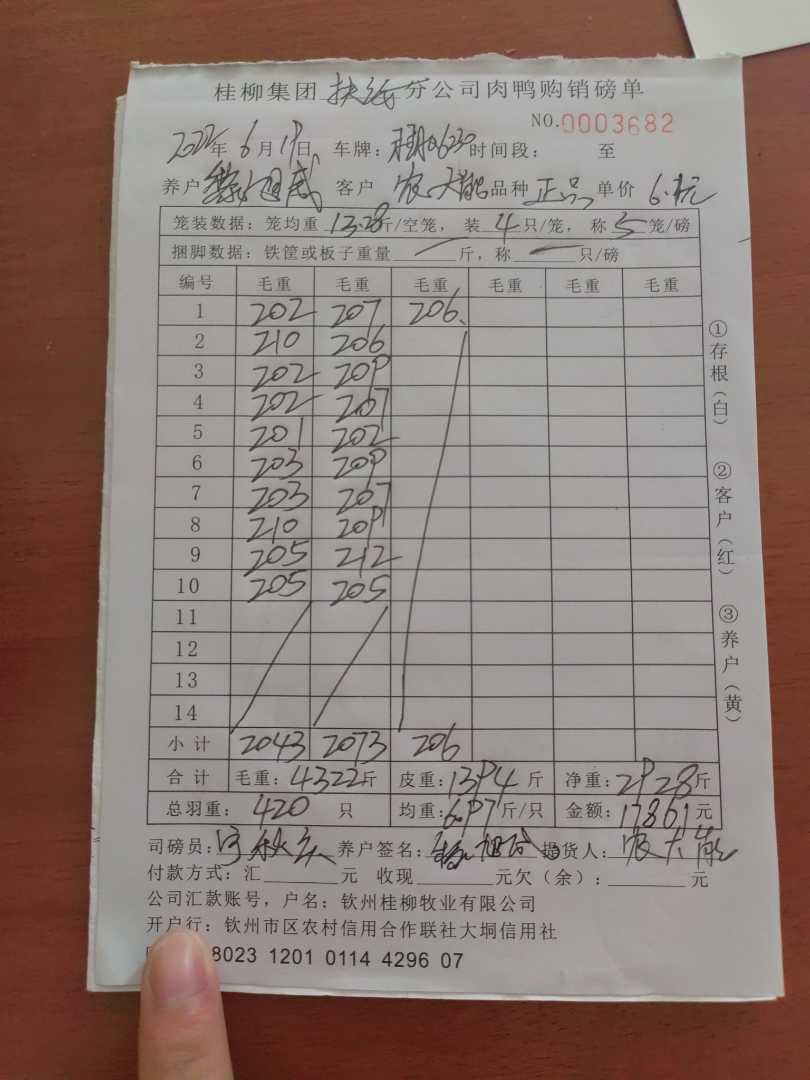 桂柳集团 分公司肉鸭购销磅单
NO.0003682
2022年 6月19日 车牌: 0630 时间段: 至
养户 客户 农大能 品种 正品 单价 6.1元
笼装数据: 笼均重 13.28斤/空笼, 装 4 只/笼, 称 5 笼/磅
捆脚数据: 铁筐或板子重量 — 斤, 称 — 只/磅
编号 毛重 毛重 毛重 毛重 毛重 毛重
1 202 207 206
2 210 206
3 202 209
4 202 207
5 201 202
6 203 209
7 203 207
8 210 209
9 205 212
10 205 205
11
12
13
14
小计 2043 2073 206
合计 毛重: 4322斤 皮重: 1394斤 净重: 2928斤
总羽重: 420 只 均重: 6.97斤/只 金额: 17861元
司磅员: 养户签名: 提货人: 农大能
付款方式: 汇 元 收现 元欠(余): 元
公司汇款账号, 户名: 钦州桂柳牧业有限公司
开户行: 钦州市区农村信用合作联社大垌信用社
8023 1201 0114 4296 07
①存根(白)
②客户(红)
③养户(黄)